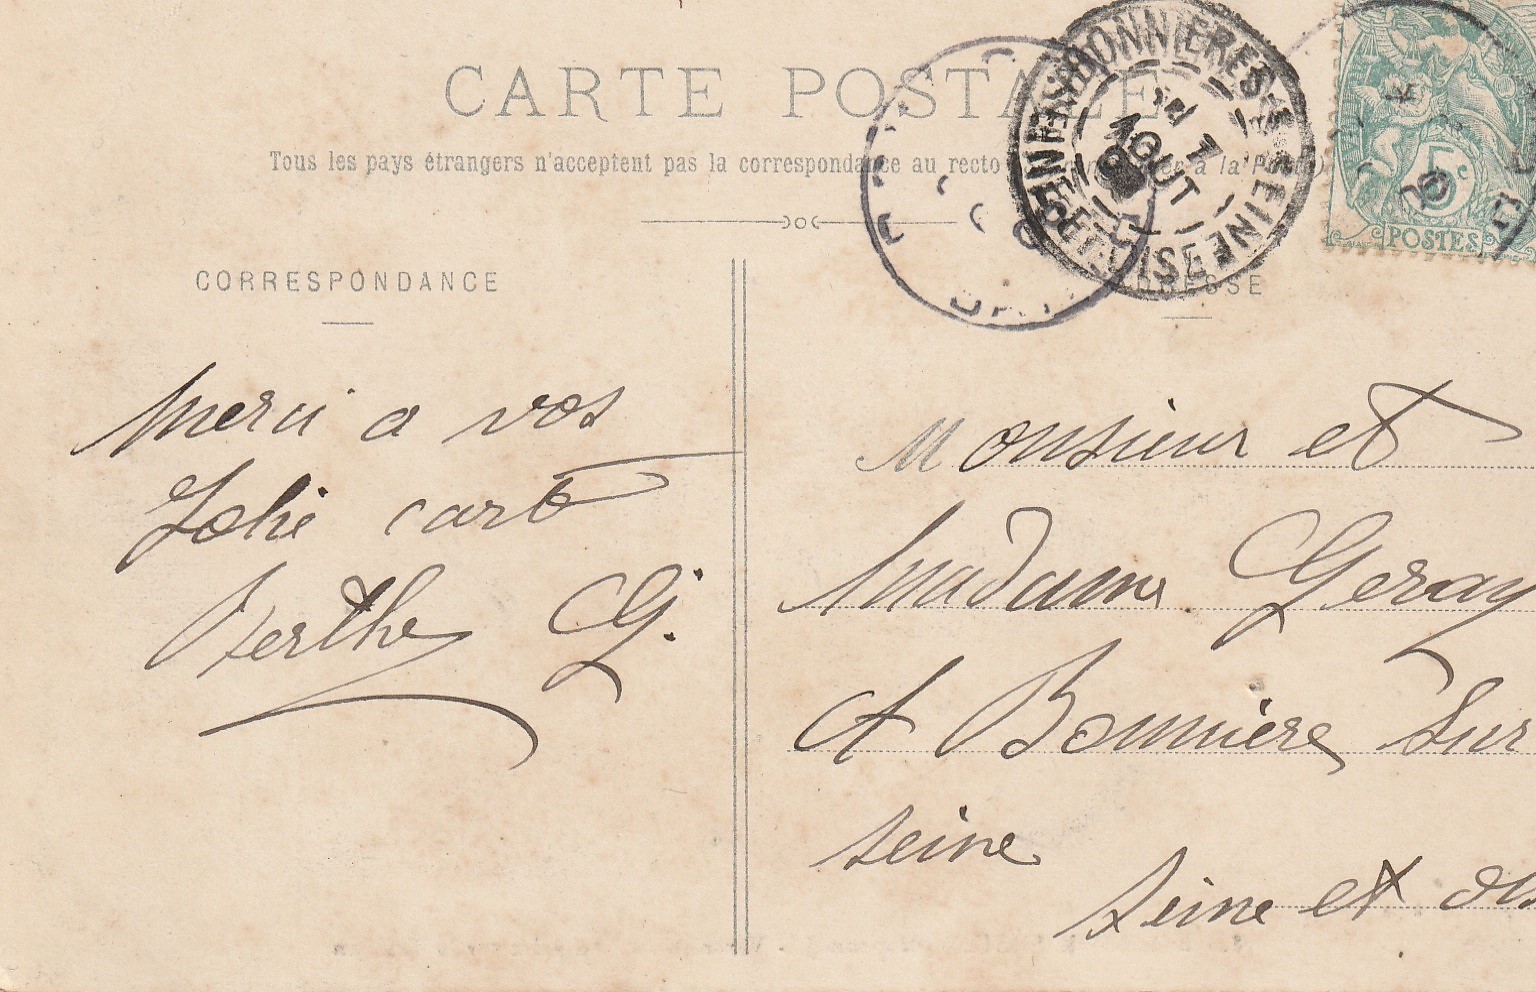 CARTE POSTALE
Tous les pays étrangers n'acceptent pas la correspondance au recto à la P
CORRESPONDANCE
merci a vos
Jolie carte
Berthe G.
BONNIÈRES-S-SEINE
7
AOUT
SEINE ET OISE
5c
POSTES
ADRESSE
Monsieur et
Madame Geray
A Bonnière sur
seine
seine et ois